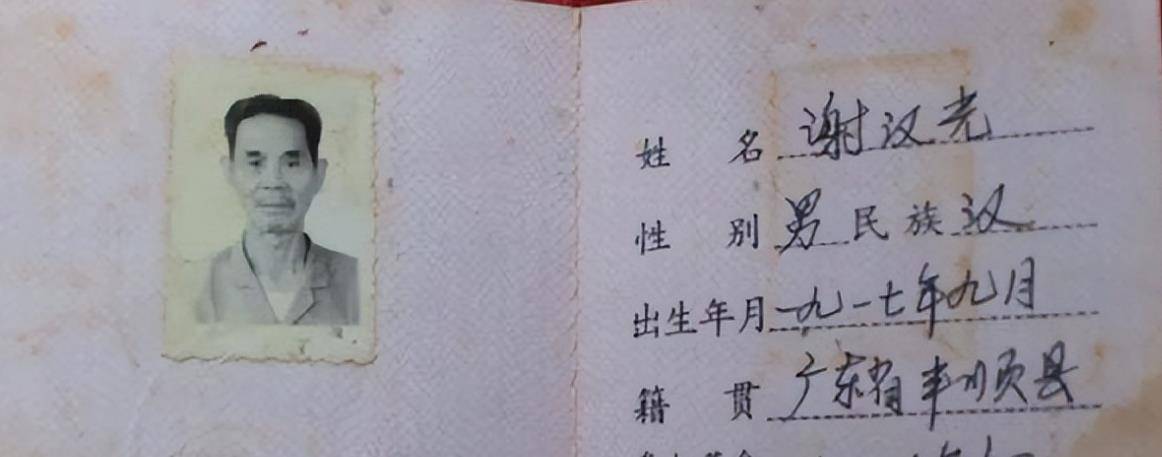 姓名 谢汉光
性别 男 民族 汉
出生年月 一九一七年九月
籍贯 广东省丰顺县